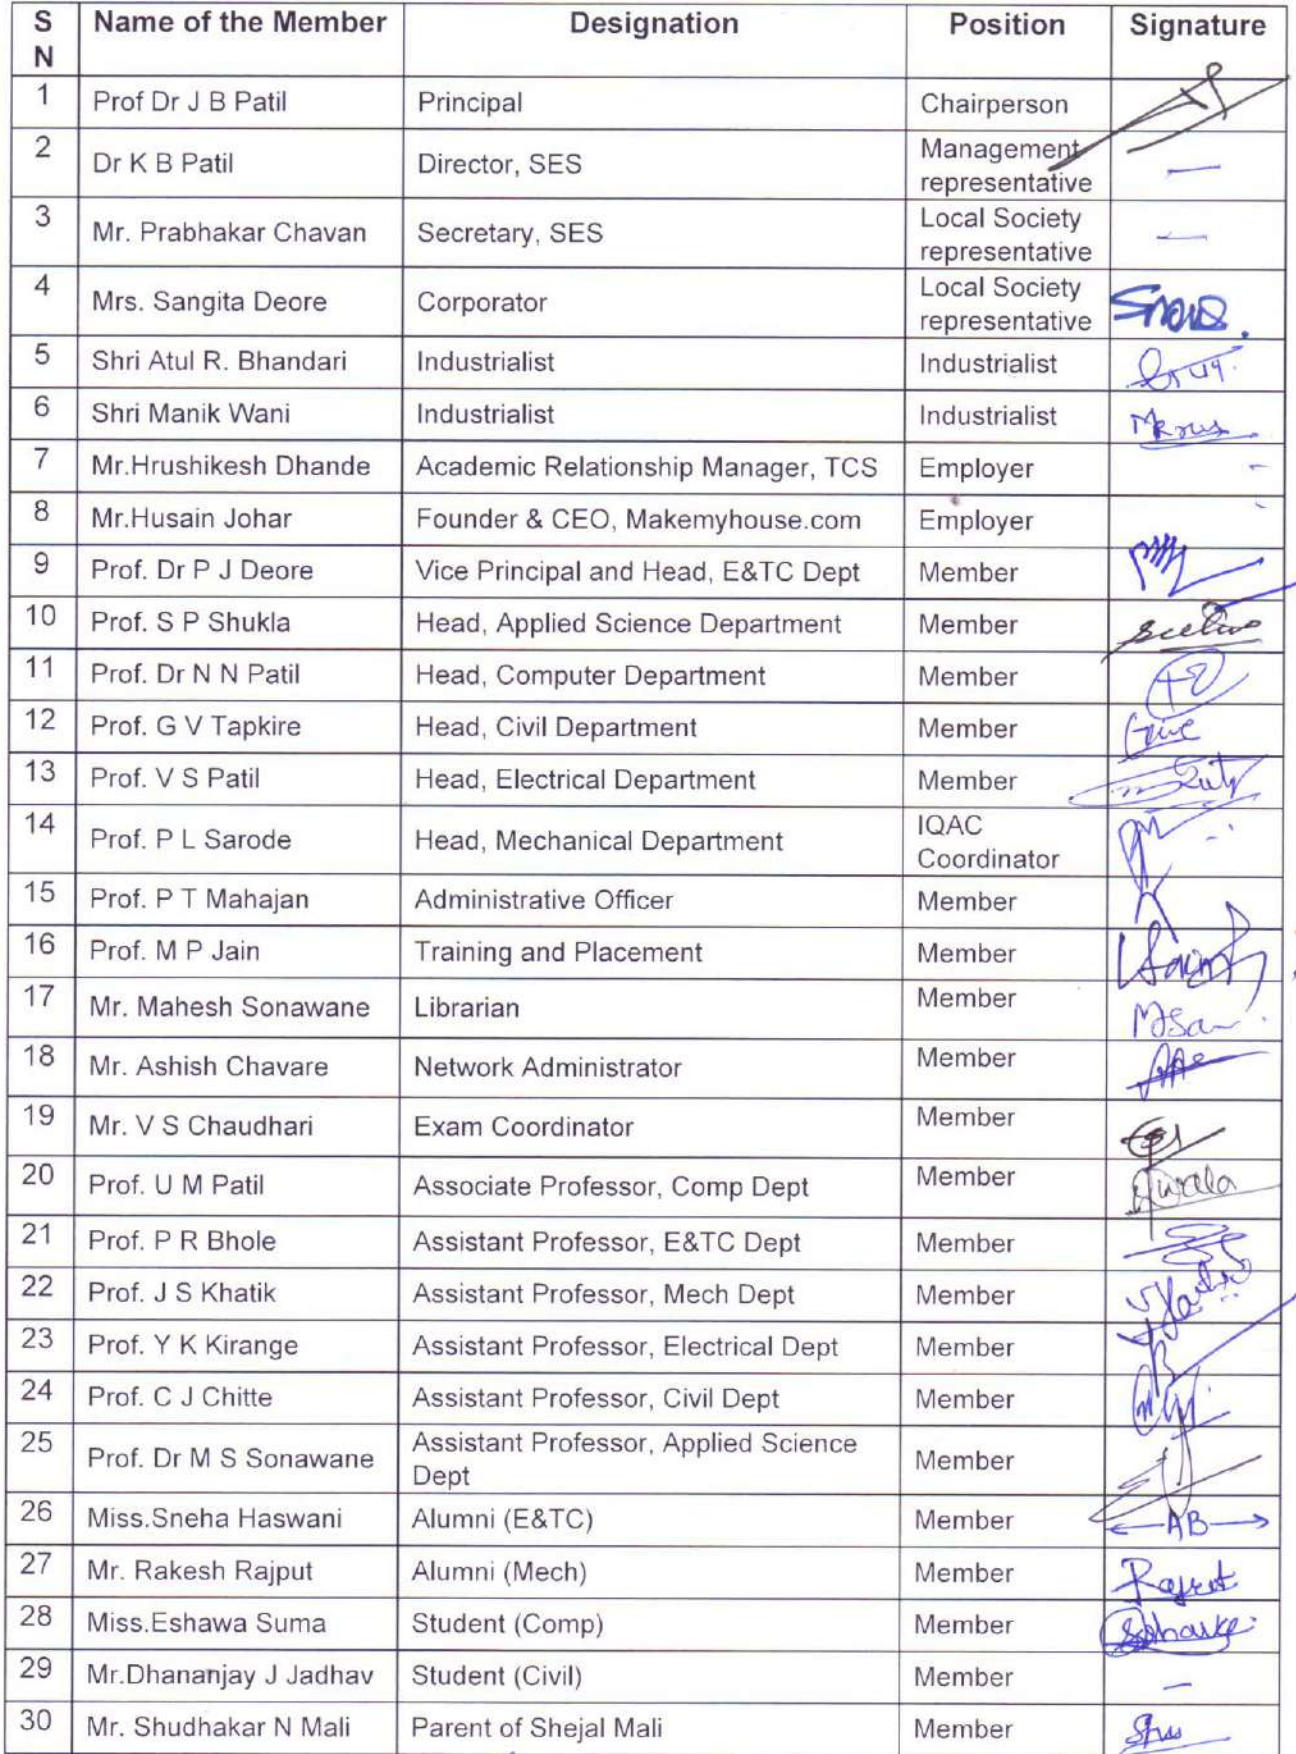 S N Name of the Member Designation Position Signature
1 Prof Dr J B Patil Principal Chairperson
2 Dr K B Patil Director, SES Management representative —
3 Mr. Prabhakar Chavan Secretary, SES Local Society representative —
4 Mrs. Sangita Deore Corporator Local Society representative
5 Shri Atul R. Bhandari Industrialist Industrialist
6 Shri Manik Wani Industrialist Industrialist
7 Mr.Hrushikesh Dhande Academic Relationship Manager, TCS Employer -
8 Mr.Husain Johar Founder & CEO, Makemyhouse.com Employer -
9 Prof. Dr P J Deore Vice Principal and Head, E&TC Dept Member
10 Prof. S P Shukla Head, Applied Science Department Member
11 Prof. Dr N N Patil Head, Computer Department Member
12 Prof. G V Tapkire Head, Civil Department Member
13 Prof. V S Patil Head, Electrical Department Member
14 Prof. P L Sarode Head, Mechanical Department IQAC Coordinator
15 Prof. P T Mahajan Administrative Officer Member
16 Prof. M P Jain Training and Placement Member
17 Mr. Mahesh Sonawane Librarian Member
18 Mr. Ashish Chavare Network Administrator Member
19 Mr. V S Chaudhari Exam Coordinator Member
20 Prof. U M Patil Associate Professor, Comp Dept Member
21 Prof. P R Bhole Assistant Professor, E&TC Dept Member
22 Prof. J S Khatik Assistant Professor, Mech Dept Member
23 Prof. Y K Kirange Assistant Professor, Electrical Dept Member
24 Prof. C J Chitte Assistant Professor, Civil Dept Member
25 Prof. Dr M S Sonawane Assistant Professor, Applied Science Dept Member
26 Miss.Sneha Haswani Alumni (E&TC) Member AB
27 Mr. Rakesh Rajput Alumni (Mech) Member Rajput
28 Miss.Eshawa Suma Student (Comp) Member
29 Mr.Dhananjay J Jadhav Student (Civil) Member —
30 Mr. Shudhakar N Mali Parent of Shejal Mali Member